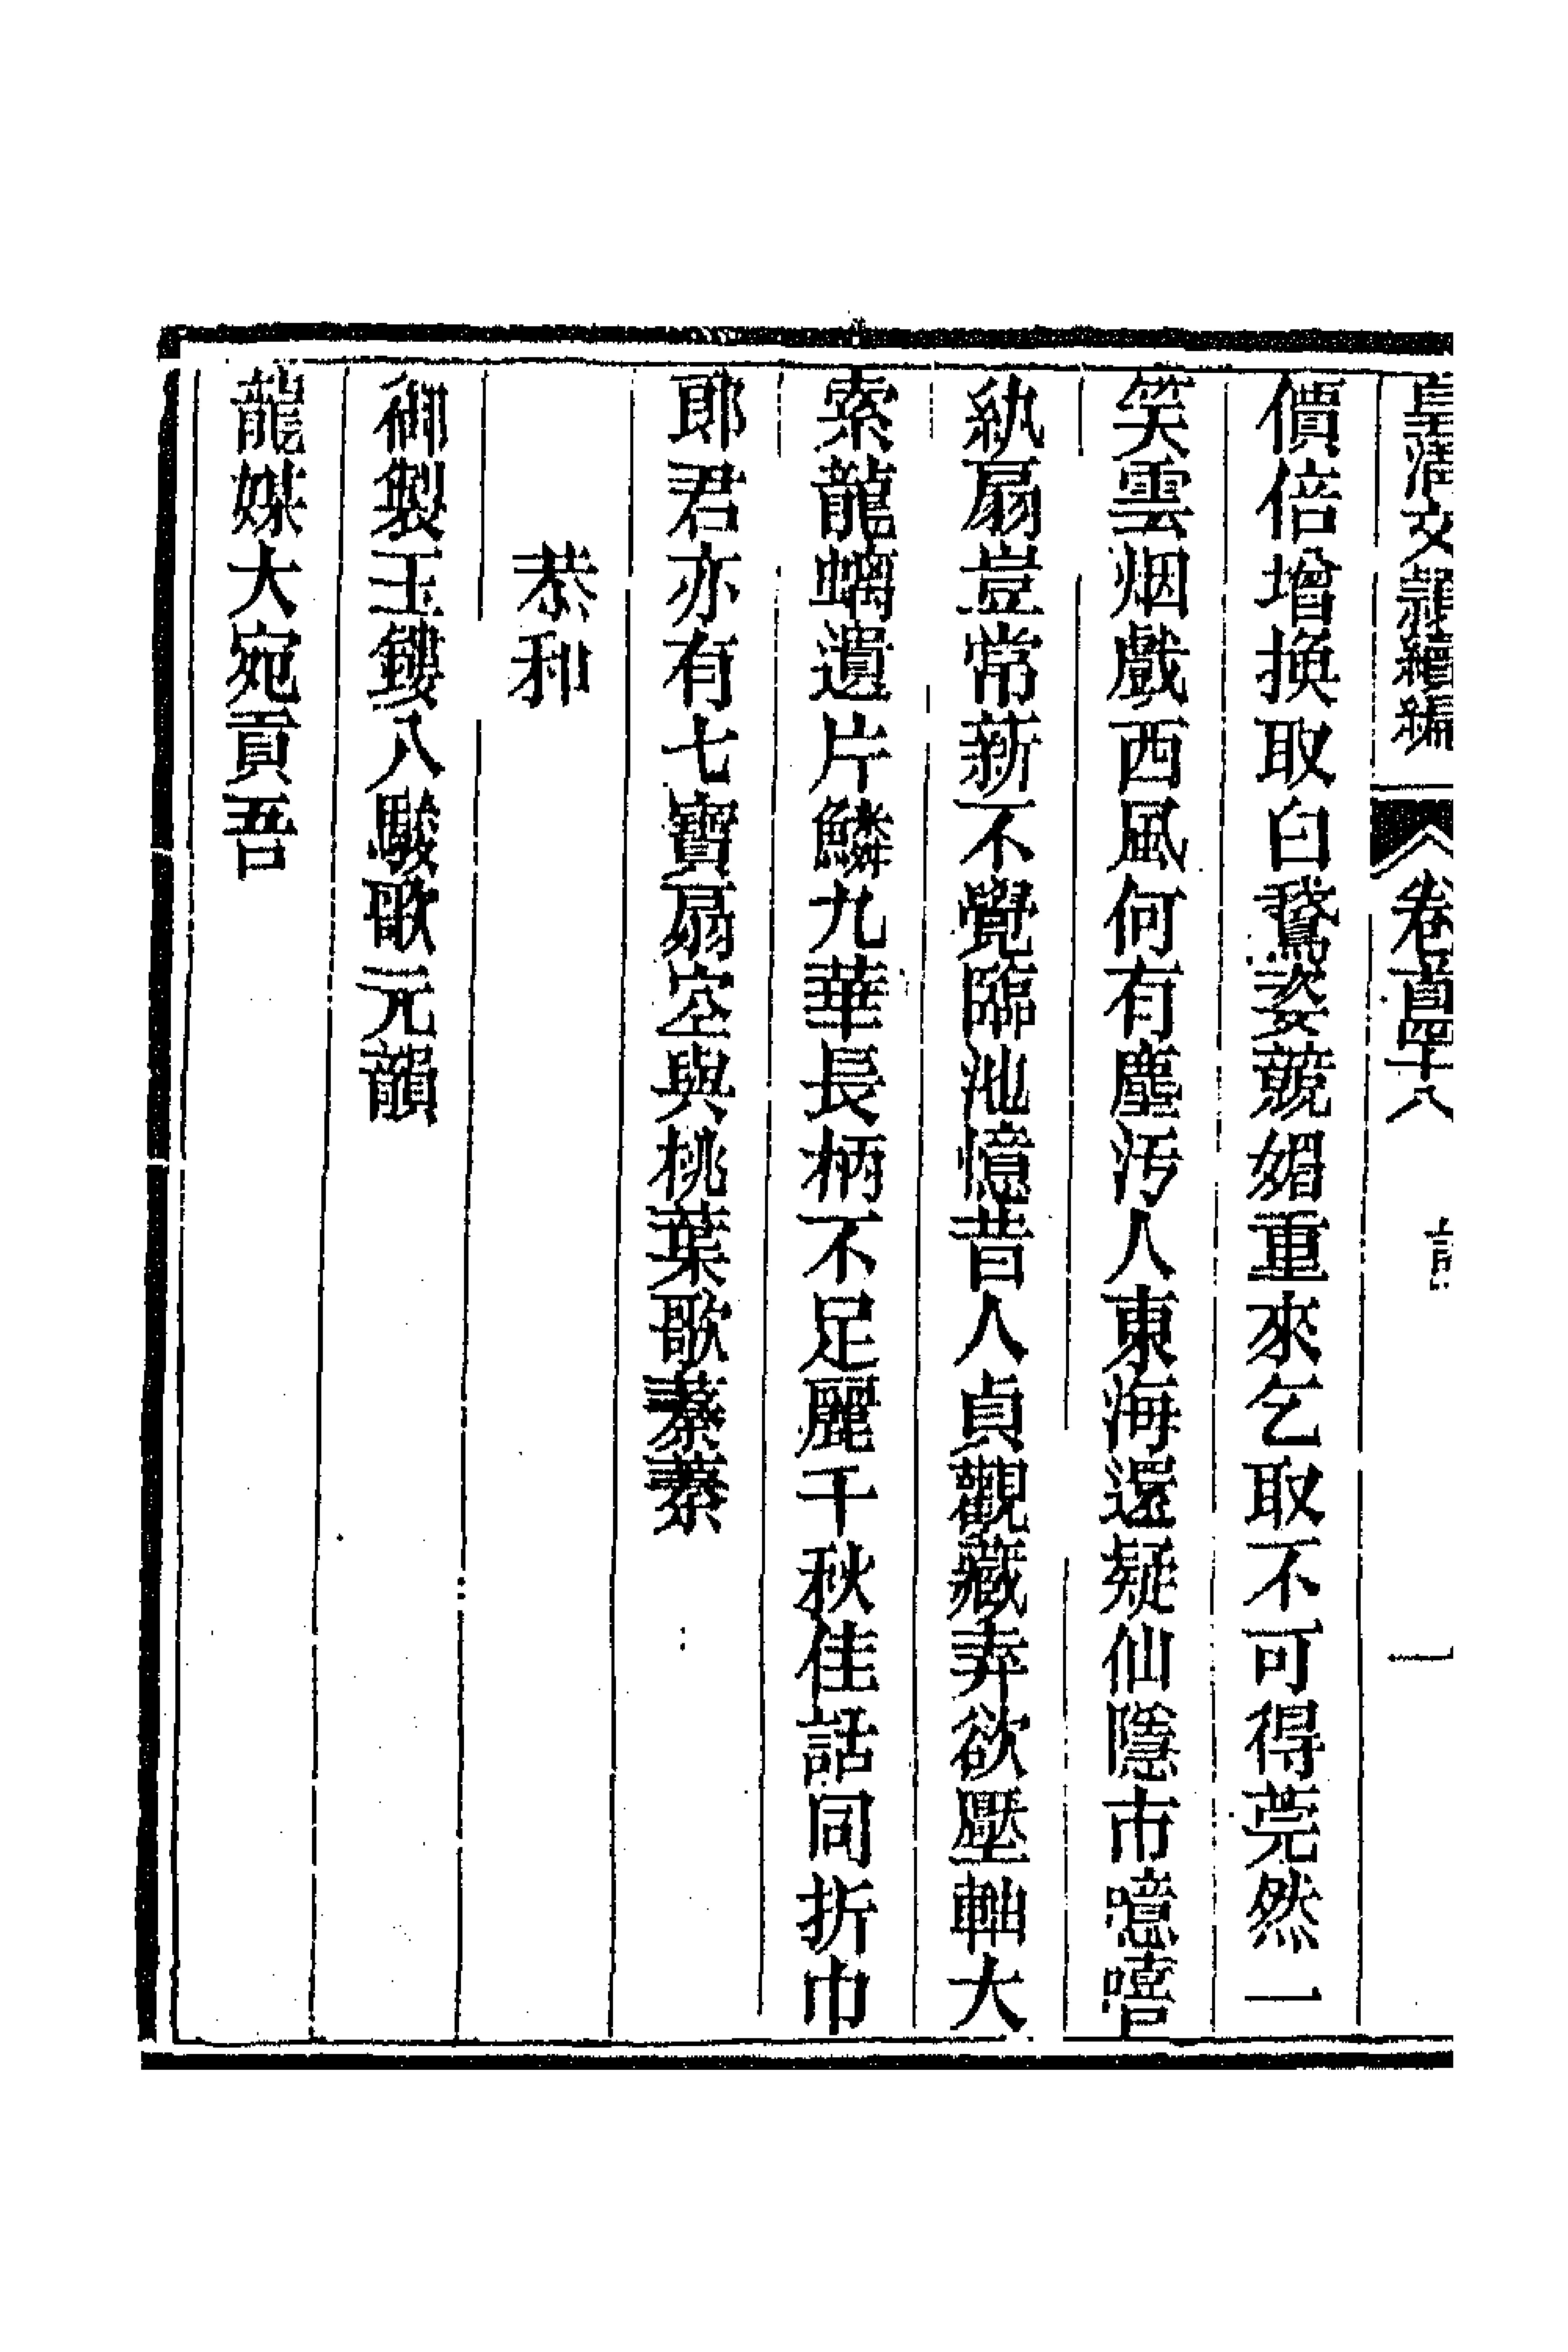 皇清文穎續編 卷首四十八 詩 一
價倍增換取白鵞姿競媚重來乞取不可得莞然一
笑雲烟戲西風何有塵汚人東海還疑仙隱市噫嘻
紈扇豈常新不覺臨池憶昔人貞觀藏弆欲壓軸大
索龍螭遺片鱗九華長柄不足麗千秋佳話同折巾
郎君亦有七寶扇空與桃葉歌蓁蓁
恭和
御製玉鏤八駿歌元韻
龍媒大宛貢吾